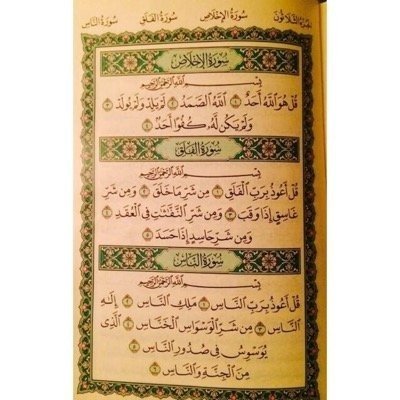 الجزء الثلاثون سورة الإخلاص سورة الفلق سورة الناس
سورة الإخلاص
بسم الله الرحمن الرحيم
قُلْ هُوَ ٱللَّهُ أَحَدٌ ١ ٱللَّهُ ٱلصَّمَدُ ٢ لَمْ يَلِدْ وَلَمْ يُولَدْ ٣
وَلَمْ يَكُن لَّهُۥ كُفُوًا أَحَدٌۢ ٤
سورة الفلق
بسم الله الرحمن الرحيم
قُلْ أَعُوذُ بِرَبِّ ٱلْفَلَقِ ١ مِن شَرِّ مَا خَلَقَ ٢ وَمِن شَرِّ
غَاسِقٍ إِذَا وَقَبَ ٣ وَمِن شَرِّ ٱلنَّفَّٰثَٰتِ فِى ٱلْعُقَدِ ٤
وَمِن شَرِّ حَاسِدٍ إِذَا حَسَدَ ٥
سورة الناس
بسم الله الرحمن الرحيم
قُلْ أَعُوذُ بِرَبِّ ٱلنَّاسِ ١ مَلِكِ ٱلنَّاسِ ٢ إِلَٰهِ
ٱلنَّاسِ ٣ مِن شَرِّ ٱلْوَسْوَاسِ ٱلْخَنَّاسِ ٤ ٱلَّذِى
يُوَسْوِسُ فِى صُدُورِ ٱلنَّاسِ ٥
مِنَ ٱلْجِنَّةِ وَٱلنَّاسِ ٦